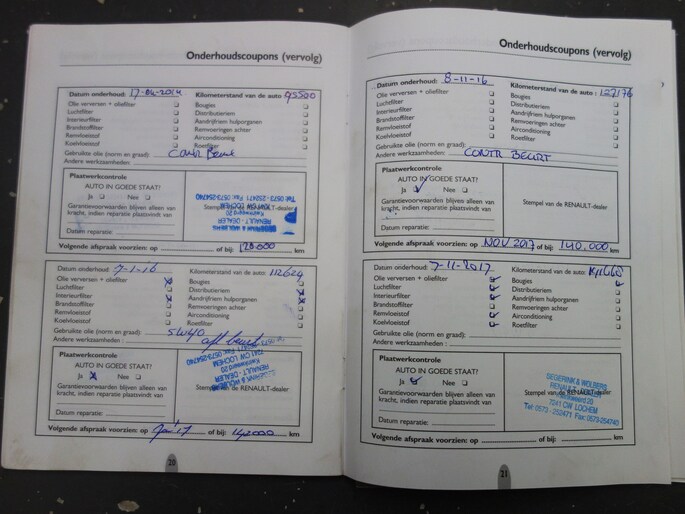 Onderhoudscoupons (vervolg)
Datum onderhoud: 17-04-2014 Kilometerstand van de auto 95500
Olie verversen + oliefilter Bougies
Luchtfilter Distributieriem
Interieurfilter Aandrijfriem hulporganen
Brandstoffilter Remvoeringen achter
Remvloeistof Airconditioning
Koelvloeistof Roetfilter
Gebruikte olie (norm en graad):
Contr Beurt
Andere werkzaamheden:
Plaatwerkcontrole
AUTO IN GOEDE STAAT?
Ja Nee
Garantievoorwaarden blijven alleen van
kracht, indien reparatie plaatsvindt van
Stempel van de RENAULT-dealer
RENAULT - DEALER
Kattewaard 20
7241 CW LOCHEM
Tel: 0573-252471 Fax: 0573-254740
Volgende afspraak voorzien: op of bij: 120.000 km
Datum onderhoud: 7-1-16 Kilometerstand van de auto: 112624
Olie verversen + oliefilter Bougies
Luchtfilter Distributieriem
Interieurfilter Aandrijfriem hulporganen
Brandstoffilter Remvoeringen achter
Remvloeistof Airconditioning
Koelvloeistof Roetfilter
Gebruikte olie (norm en graad): 5W40
Andere werkzaamheden:
Plaatwerkcontrole
AUTO IN GOEDE STAAT?
Ja x Nee
Garantievoorwaarden blijven alleen van
kracht, indien reparatie plaatsvindt van
Datum reparatie:
Stempel van de RENAULT-dealer
RENAULT - DEALER
7241 CW LOCHEM
Volgende afspraak voorzien: op of bij: 142000 km
20
Onderhoudscoupons (vervolg)
Datum onderhoud: 8-11-16 Kilometerstand van de auto: 127176
Olie verversen + oliefilter Bougies
Luchtfilter Distributieriem
Interieurfilter Aandrijfriem hulporganen
Brandstoffilter Remvoeringen achter
Remvloeistof Airconditioning
Koelvloeistof Roetfilter
Gebruikte olie (norm en graad):
Andere werkzaamheden: CONTR BEURT
Plaatwerkcontrole
AUTO IN GOEDE STAAT?
Ja Nee
Garantievoorwaarden blijven alleen van
kracht, indien reparatie plaatsvindt van
Datum reparatie:
Stempel van de RENAULT-dealer
Volgende afspraak voorzien: op NOV 2017 of bij: 140.000 km
Datum onderhoud: 7-11-2017 Kilometerstand van de auto:
Olie verversen + oliefilter Bougies
Luchtfilter Distributieriem
Interieurfilter Aandrijfriem hulporganen
Brandstoffilter Remvoeringen achter
Remvloeistof Airconditioning
Koelvloeistof Roetfilter
Gebruikte olie (norm en graad):
Andere werkzaamheden:
Plaatwerkcontrole
AUTO IN GOEDE STAAT?
Ja Nee
Garantievoorwaarden blijven alleen van
kracht, indien reparatie plaatsvindt van
Datum reparatie:
SEGERINK & WOLBERS
Stempel van de RENAULT-dealer
7241 CW LOCHEM
Tel: 0573-252471 Fax: 0573-254740
Volgende afspraak voorzien: op of bij: km
21